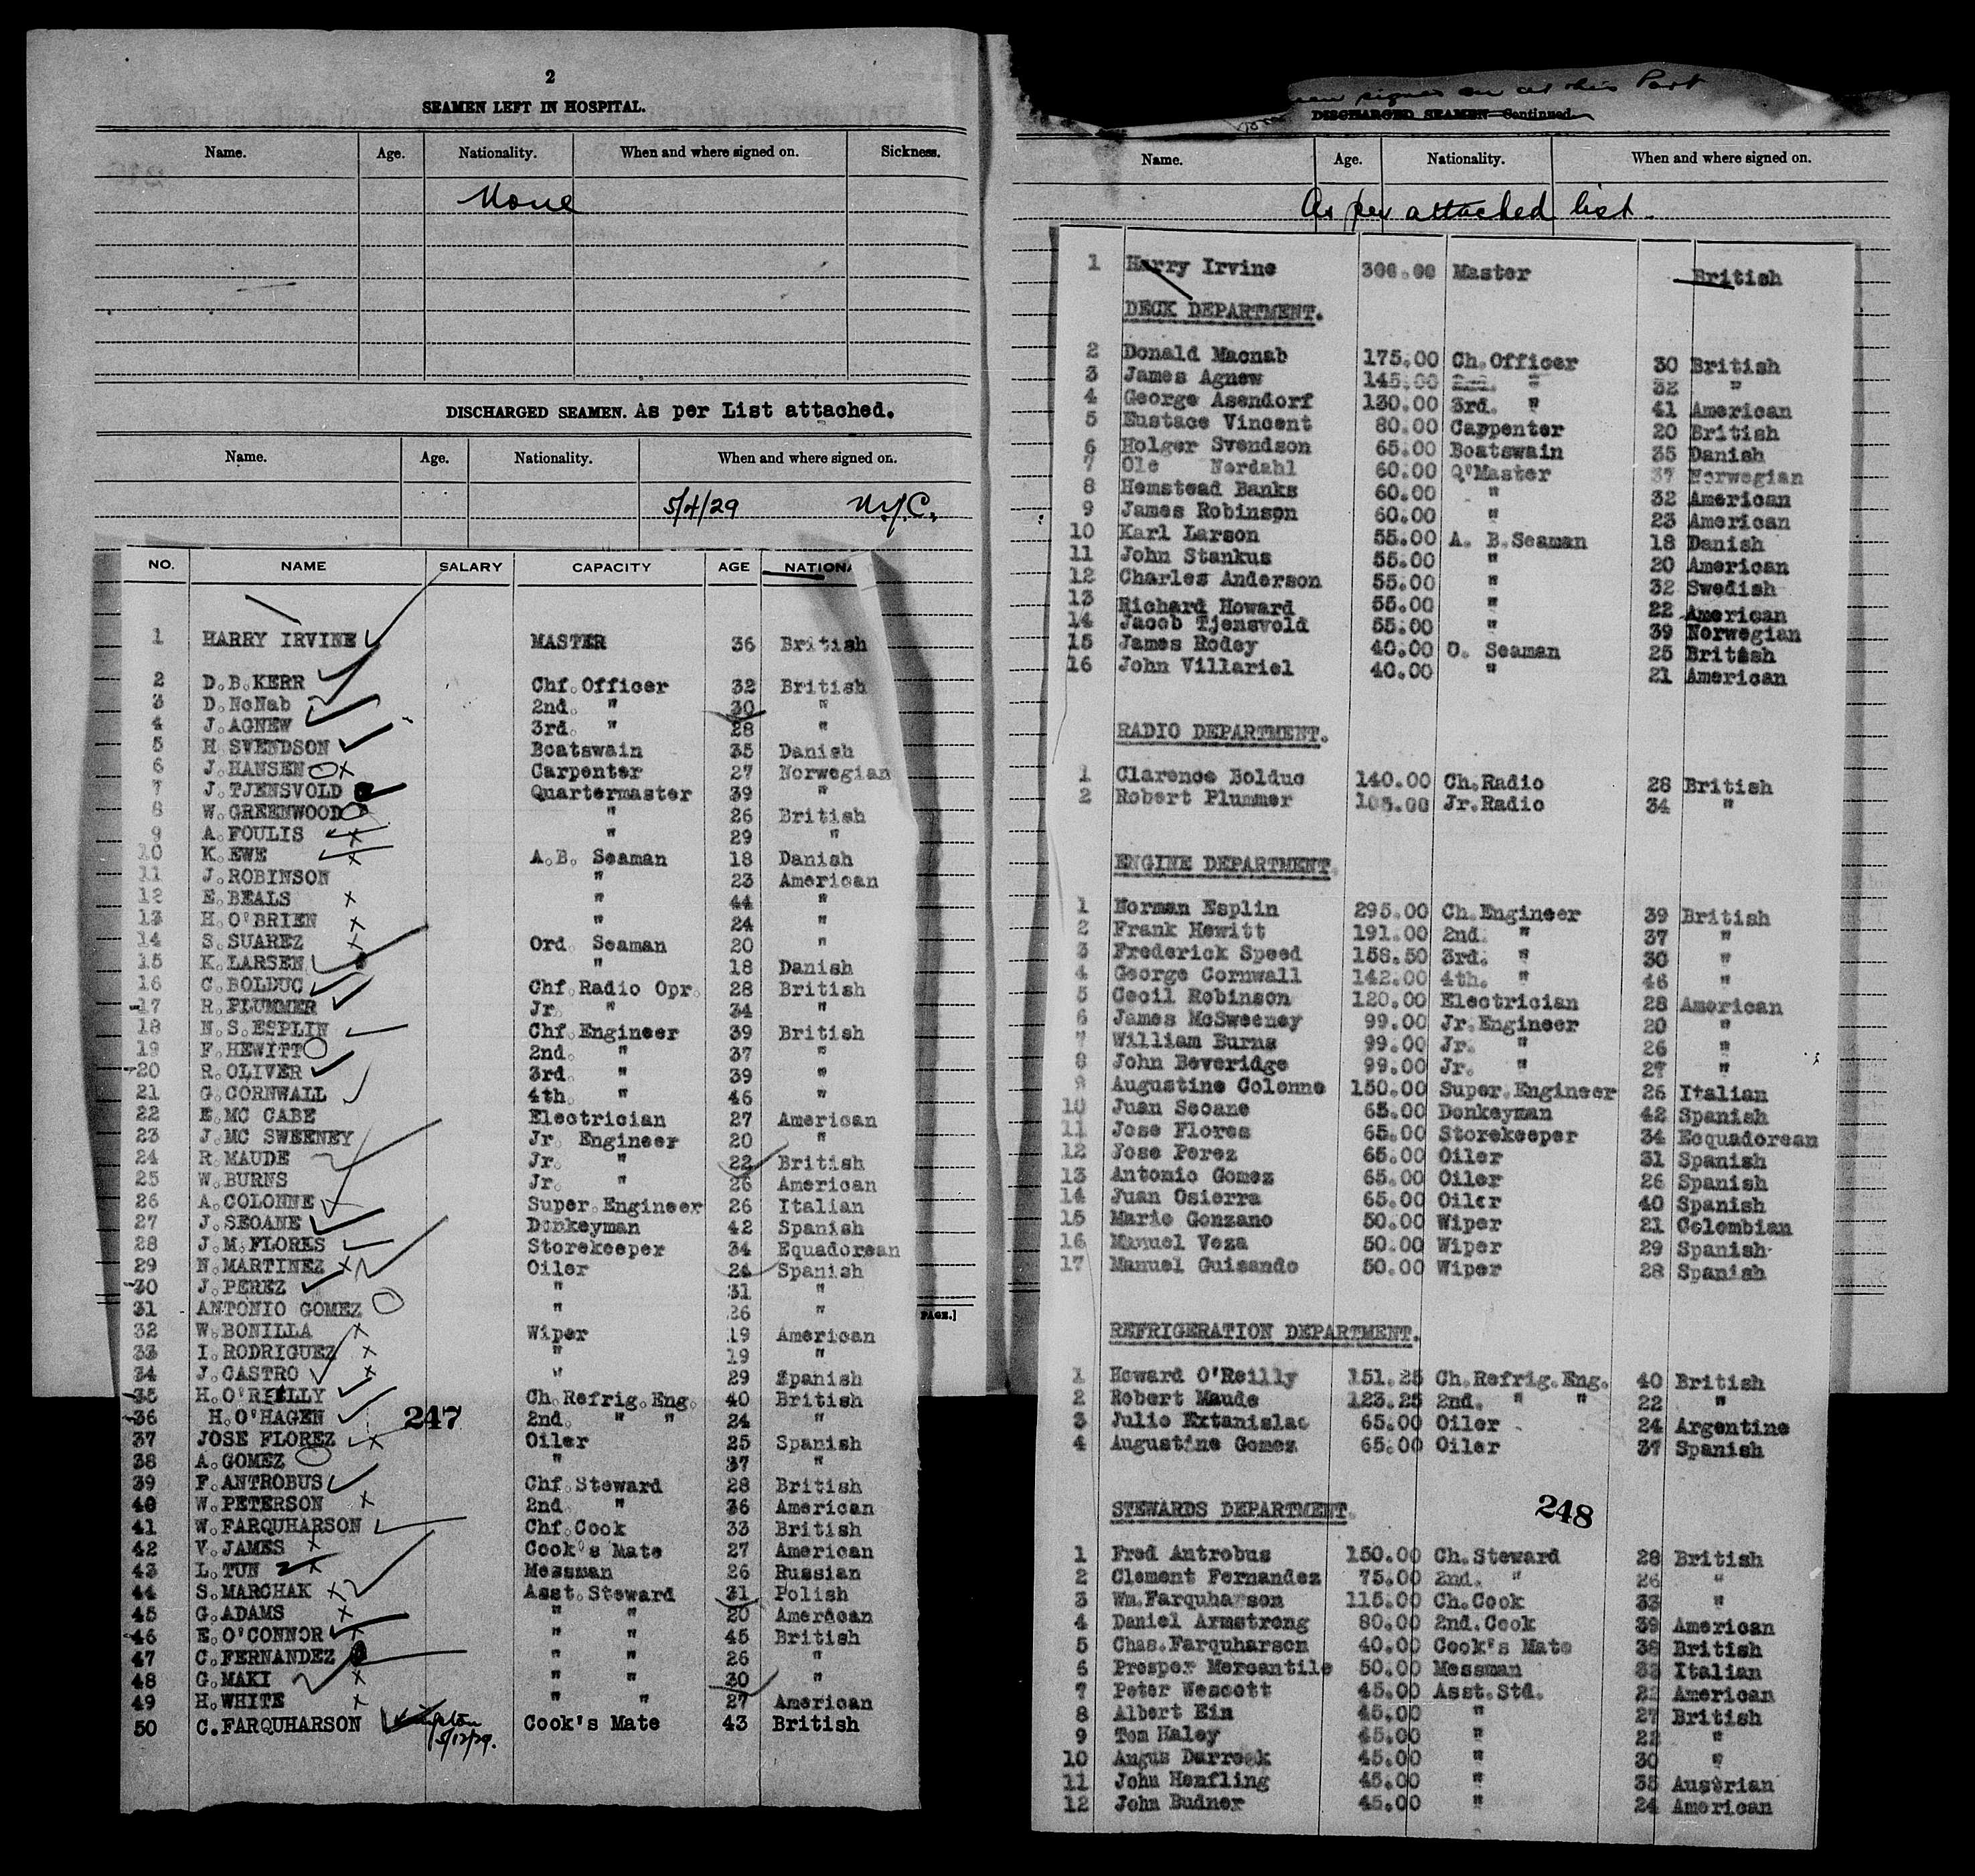 2
SEAMEN LEFT IN HOSPITAL.
Name. Age. Nationality. When and where signed on. Sickness.
None
DISCHARGED SEAMEN. As per List attached.
Name. Age. Nationality. When and where signed on.
5/4/29 N.Y.C.
NO. NAME SALARY CAPACITY AGE NATIONA
1 HARRY IRVINE MASTER 36 British
2 D.B.KERR Chf.Officer 32 British
3 D.McNab 2nd. " 30 "
4 J.AGNEW 3rd. " 28 "
5 H SVENDSON Boatswain 35 Danish
6 J.HANSEN Carpenter 27 Norwegian
7 J.TJENSVOLD Quartermaster 39 "
8 W.GREENWOOD " 26 British
9 A.FOULIS " 29 "
10 K.EWE A.B. Seaman 18 Danish
11 J.ROBINSON " 23 American
12 E.BEALS " 44 "
13 H.O'BRIEN " 24 "
14 S.SUAREZ Ord. Seaman 20 "
15 K.LARSEN " 18 Danish
16 C.BOLDUC Chf.Radio Opr. 28 British
17 R.PLUMMER Jr. " 34 "
18 N.S.ESPLIN Chf.Engineer 39 British
19 F.HEWITT 2nd. " 37 "
20 R.OLIVER 3rd. " 39 "
21 G.CORNWALL 4th. " 46 "
22 E.MC CABE Electrician 27 American
23 J.MC SWEENEY Jr. Engineer 20 "
24 R.MAUDE Jr. " 22 British
25 W.BURNS Jr. " 26 American
26 A.COLONNE Super.Engineer 26 Italian
27 J.SEOANE Donkeyman 42 Spanish
28 J.M.FLORES Storekeeper 34 Equadorean
29 N.MARTINEZ Oiler 24 Spanish
30 J.PEREZ " 31 "
31 ANTONIO GOMEZ " 26 "
32 W.BONILLA Wiper 19 American
33 I.RODRIGUEZ " 19 "
34 J.CASTRO " 29 Spanish
35 H.O'RIELLY Ch.Refrig.Eng. 40 British
36 H.O'HAGEN 2nd. " " 24 "
247
37 JOSE FLOREZ Oiler 25 Spanish
38 A.GOMEZ " 37 "
39 F.ANTROBUS Chf.Steward 28 British
40 W.PETERSON 2nd. " 36 American
41 W.FARQUHARSON Chf.Cook 33 British
42 V.JAMES Cook's Mate 27 American
43 L.TUN Messman 26 Russian
44 S.MARCHAK Asst.Steward 31 Polish
45 G.ADAMS " " 20 American
46 E.O'CONNOR " " 45 British
47 C.FERNANDEZ " " 26 "
48 G.MAKI " " 30 "
49 H.WHITE " " 27 American
50 C.FARQUHARSON 5/12/29. Cook's Mate 43 British
PAGE.]
signed on at this Port
DISCHARGED SEAMEN Continued.
Name. Age. Nationality. When and where signed on.
As per attached list.
1 Harry Irvine 300.00 Master British
DECK DEPARTMENT.
2 Donald Macnab 175.00 Ch.Officer 30 British
3 James Agnew 145.00 2nd. " 32 "
4 George Asendorf 130.00 3rd. " 41 American
5 Eustace Vincent 80.00 Carpenter 20 British
6 Holger Svendson 65.00 Boatswain 35 Danish
7 Ole Nordahl 60.00 Q'Master 37 Norwegian
8 Hemstead Banks 60.00 " 32 American
9 James Robinson 60.00 " 23 American
10 Karl Larson 55.00 A. B.Seaman 18 Danish
11 John Stankus 55.00 " 20 American
12 Charles Anderson 55.00 " 32 Swedish
13 Richard Howard 55.00 " 22 American
14 Jacob Tjensvold 55.00 " 39 Norwegian
15 James Rodey 40.00 O. Seaman 25 British
16 John Villariel 40.00 " 21 American
RADIO DEPARTMENT.
1 Clarence Bolduc 140.00 Ch.Radio 28 British
2 Robert Plummer 105.00 Jr.Radio 34 "
ENGINE DEPARTMENT.
1 Norman Esplin 295.00 Ch.Engineer 39 British
2 Frank Hewitt 191.00 2nd. " 37 "
3 Frederick Speed 158.50 3rd. " 30 "
4 George Cornwall 142.00 4th. " 46 "
5 Cecil Robinson 120.00 Electrician 28 American
6 James McSweeney 99.00 Jr.Engineer 20 "
7 William Burns 99.00 Jr. " 26 "
8 John Beveridge 99.00 Jr. " 27 "
9 Augustine Colonne 150.00 Super.Engineer 26 Italian
10 Juan Seoane 65.00 Donkeyman 42 Spanish
11 Jose Flores 65.00 Storekeeper 34 Ecquadorean
12 Jose Perez 65.00 Oiler 31 Spanish
13 Antomio Gomez 65.00 Oiler 26 Spanish
14 Juan Osierra 65.00 Oiler 40 Spanish
15 Mario Gonzano 50.00 Wiper 21 Colombian
16 Manuel Veza 50.00 Wiper 29 Spanish
17 Manuel Guisande 50.00 Wiper 28 Spanish
REFRIGERATION DEPARTMENT.
1 Howard O'Reilly 151.25 Ch.Refrig.Eng. 40 British
2 Robert Maude 123.25 2nd. " " 22 "
3 Julio Extanislao 65.00 Oiler 24 Argentine
4 Augustine Gomez 65.00 Oiler 37 Spanish
STEWARDS DEPARTMENT.
248
1 Fred Antrobus 150.00 Ch.Steward 28 British
2 Clement Fernandez 75.00 2nd. " 26 "
3 Wm.Farquharson 115.00 Ch.Cook 33 "
4 Daniel Armstrong 80.00 2nd.Cook 39 American
5 Chas.Farquharson 40.00 Cook's Mate 38 British
6 Prosper Mercantile 50.00 Messman Italian
7 Peter Wescott 45.00 Asst.Std. 22 American
8 Albert Ein 45.00 " 27 British
9 Tom Haley 45.00 " 22 "
10 Angus Darrock 45.00 " 30 "
11 John Henfling 45.00 " 35 Austrian
12 John Budner 45.00 " 24 American